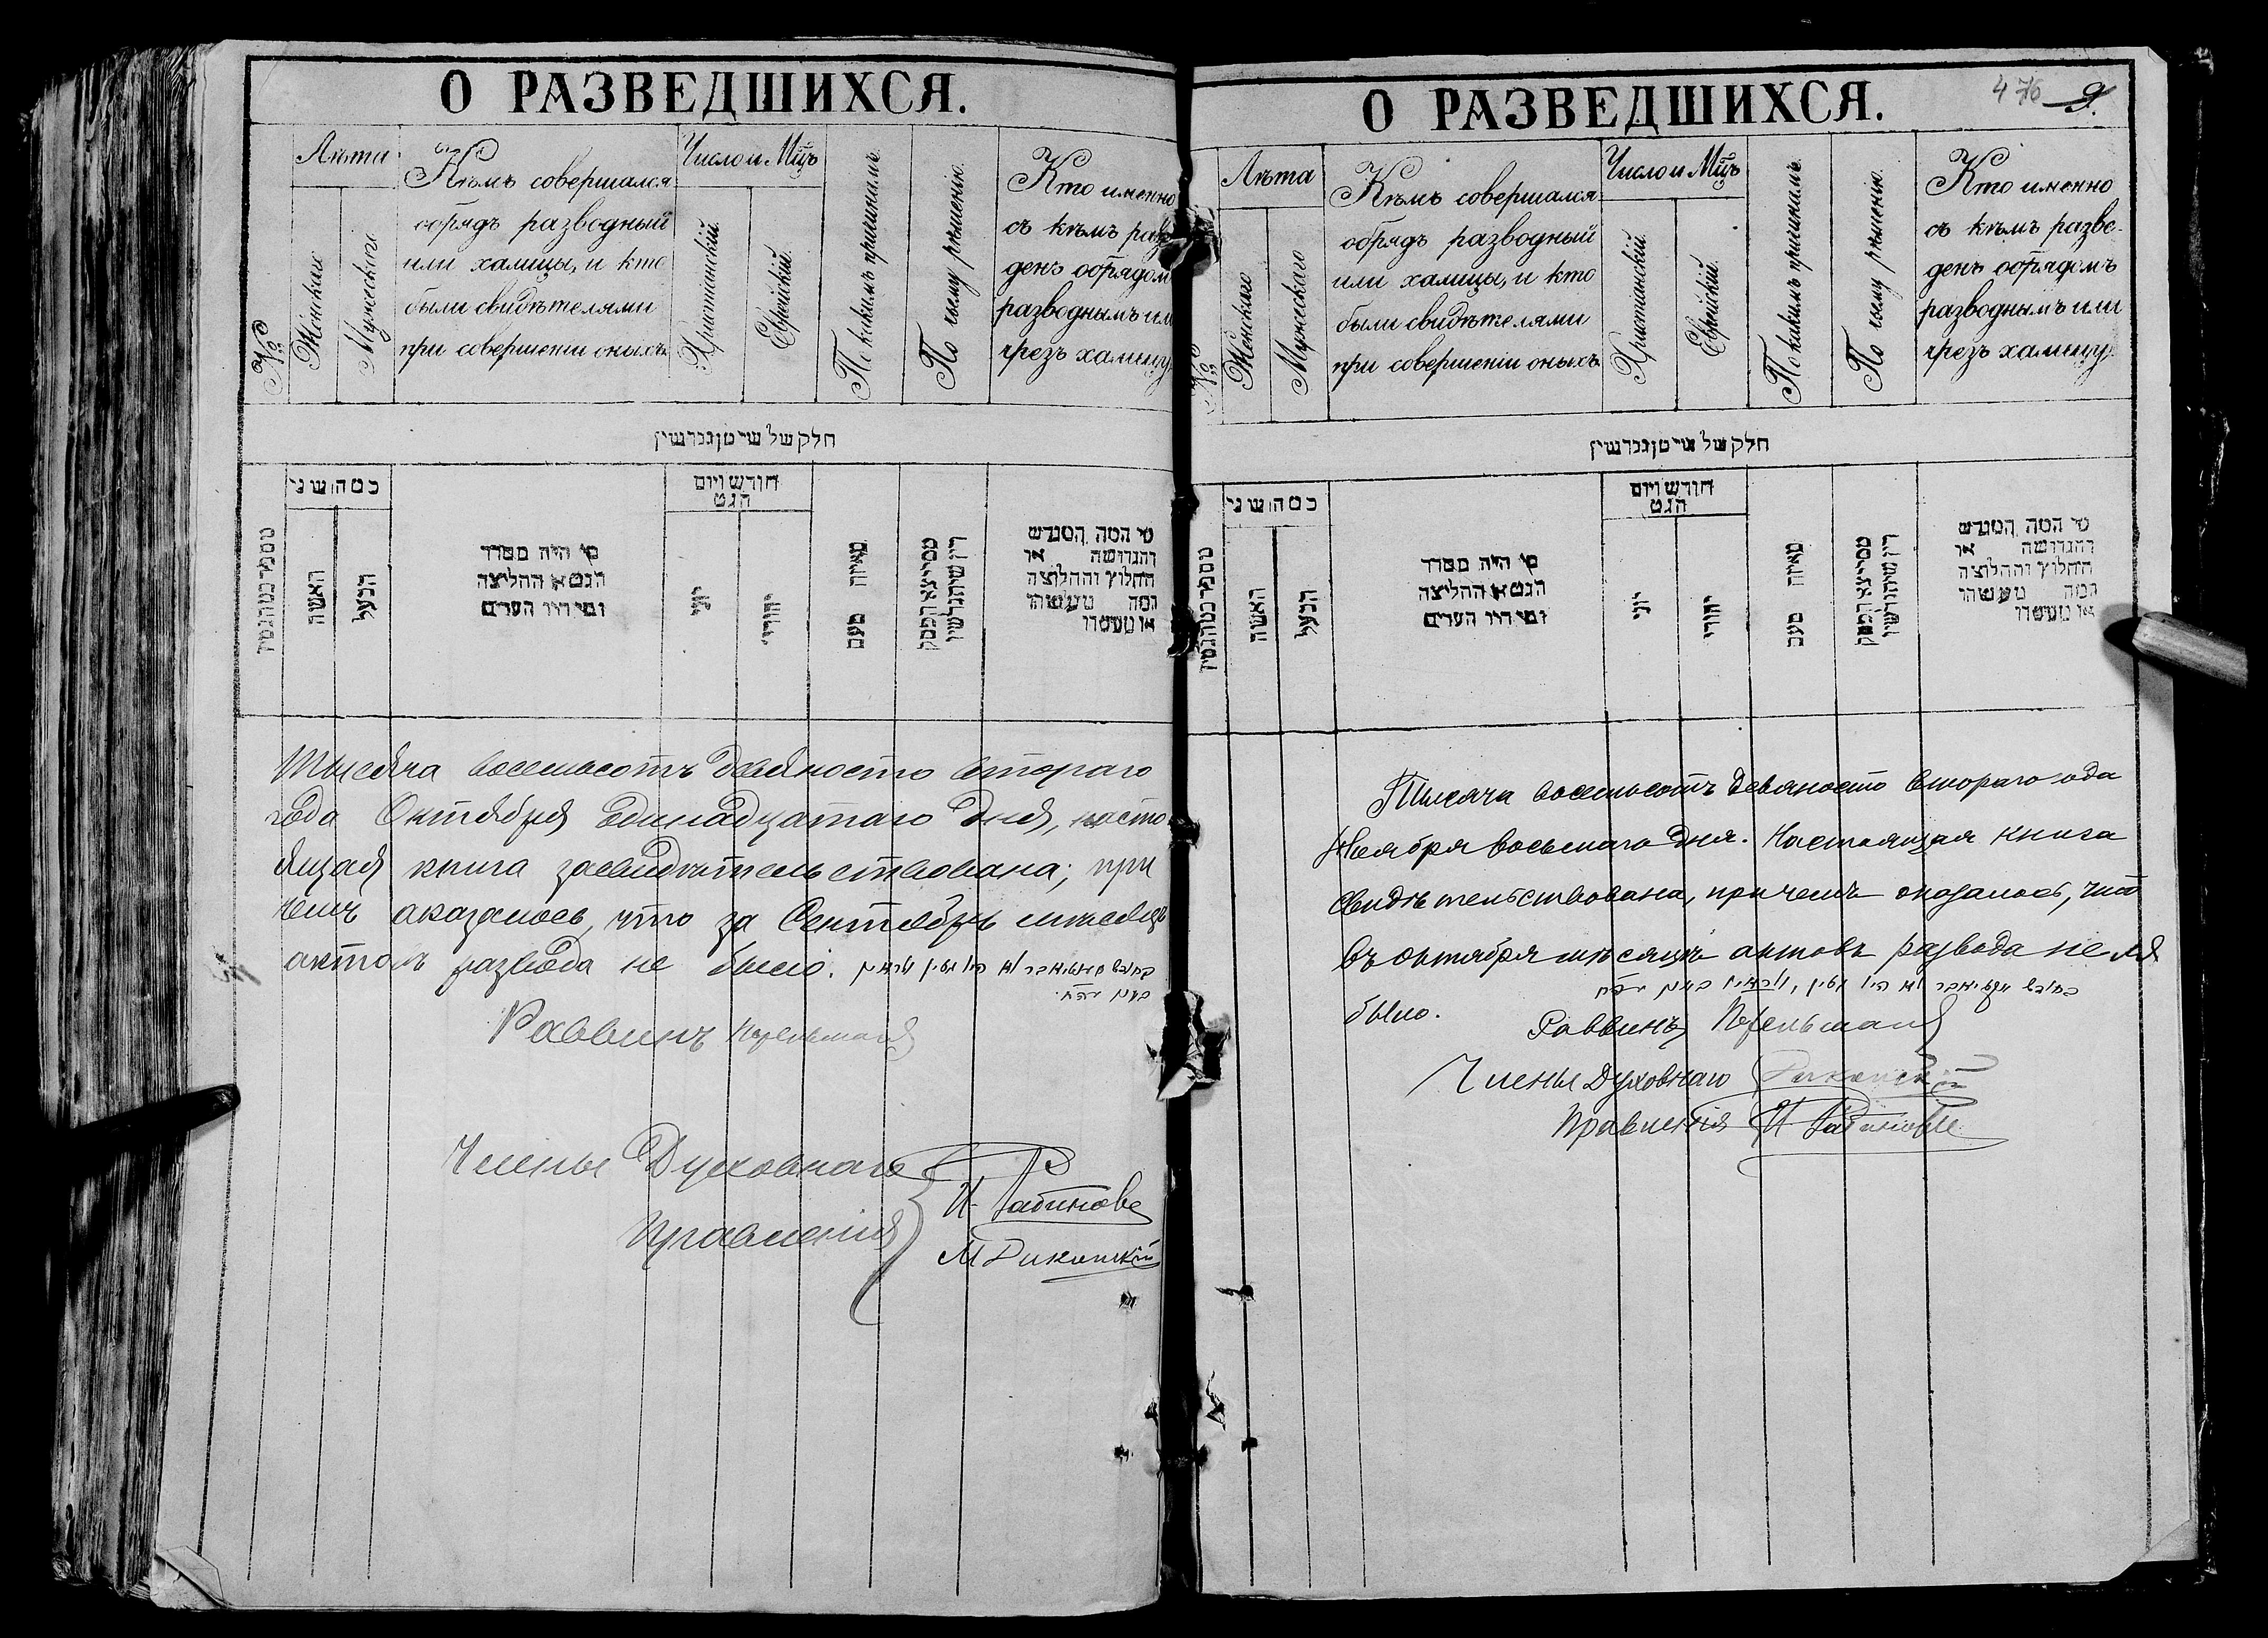 О РАЗВЕДШИХСЯ.
№
Лѣта
Женскаго
Мужескаго
Кѣмъ совершался
обрядъ разводный
или халицы, и кто
были свидѣтелями
при совершеніи оныхъ.
Число и Мѣсяцъ
Христіанскій.
Еврейскій.
По какимъ причинамъ.
По чьему рѣшенію.
Кто именно
съ кѣмъ разве
денъ обрядом
разводнымъ или
чрезъ халицу.
חלק של שייטן גרושין
מספר כמה גטין
כמה שני
האשה
הבעל
מי היה מסדר
הגט או החליצה
ומי היו העדים
חודש ויום
הגט
יוני
יהודי
מאיזה טעם
מי המה המגרש
והגרושה או
החלוץ והחלוצה
Тысяча восемьсотъ девяносто втораго
года Октября одинадцатаго дня, насто
ящая книга засвидѣтельствована; при
чемъ аказалось, что за Сентябрь мѣсяцъ
актовъ развода не было.
Раввинъ Перельманъ
Члены Духовнаго
Правленія
И. Рабиновъ
М Дикопскій
О РАЗВЕДШИХСЯ.
476 9.
№
Лѣта
Женскаго
Мужескаго
Кѣмъ совершался
обрядъ разводный
или халицы, и кто
были свидѣтелями
при совершеніи оныхъ.
Число и Мѣсяцъ
Христіанскій.
Еврейскій.
По какимъ причинамъ.
По чьему рѣшенію.
Кто именно
съ кѣмъ разве-
денъ обрядомъ
разводнымъ или
чрезъ халицу.
חלק של שייטן גרושין
מספר כמה גטין
כמה שני
האשה
הבעל
מי היה מסדר
הגט או החליצה
ומי היו העדים
חודש ויום
הגט
יוני
יהודי
מאיזה טעם
מי המה המגרש
והגרושה או
החלוץ והחלוצה
Тысяча восемьсотъ девяносто втораго ода
Ноября восьмаго дня. Настоящая книга
свидѣтельствована, причемъ оказалось, что
въ октября мѣсяцѣ актовъ развода не
было.
Раввинъ Перельманъ
Члены Духовнаго
Правленія И Рабиновъ